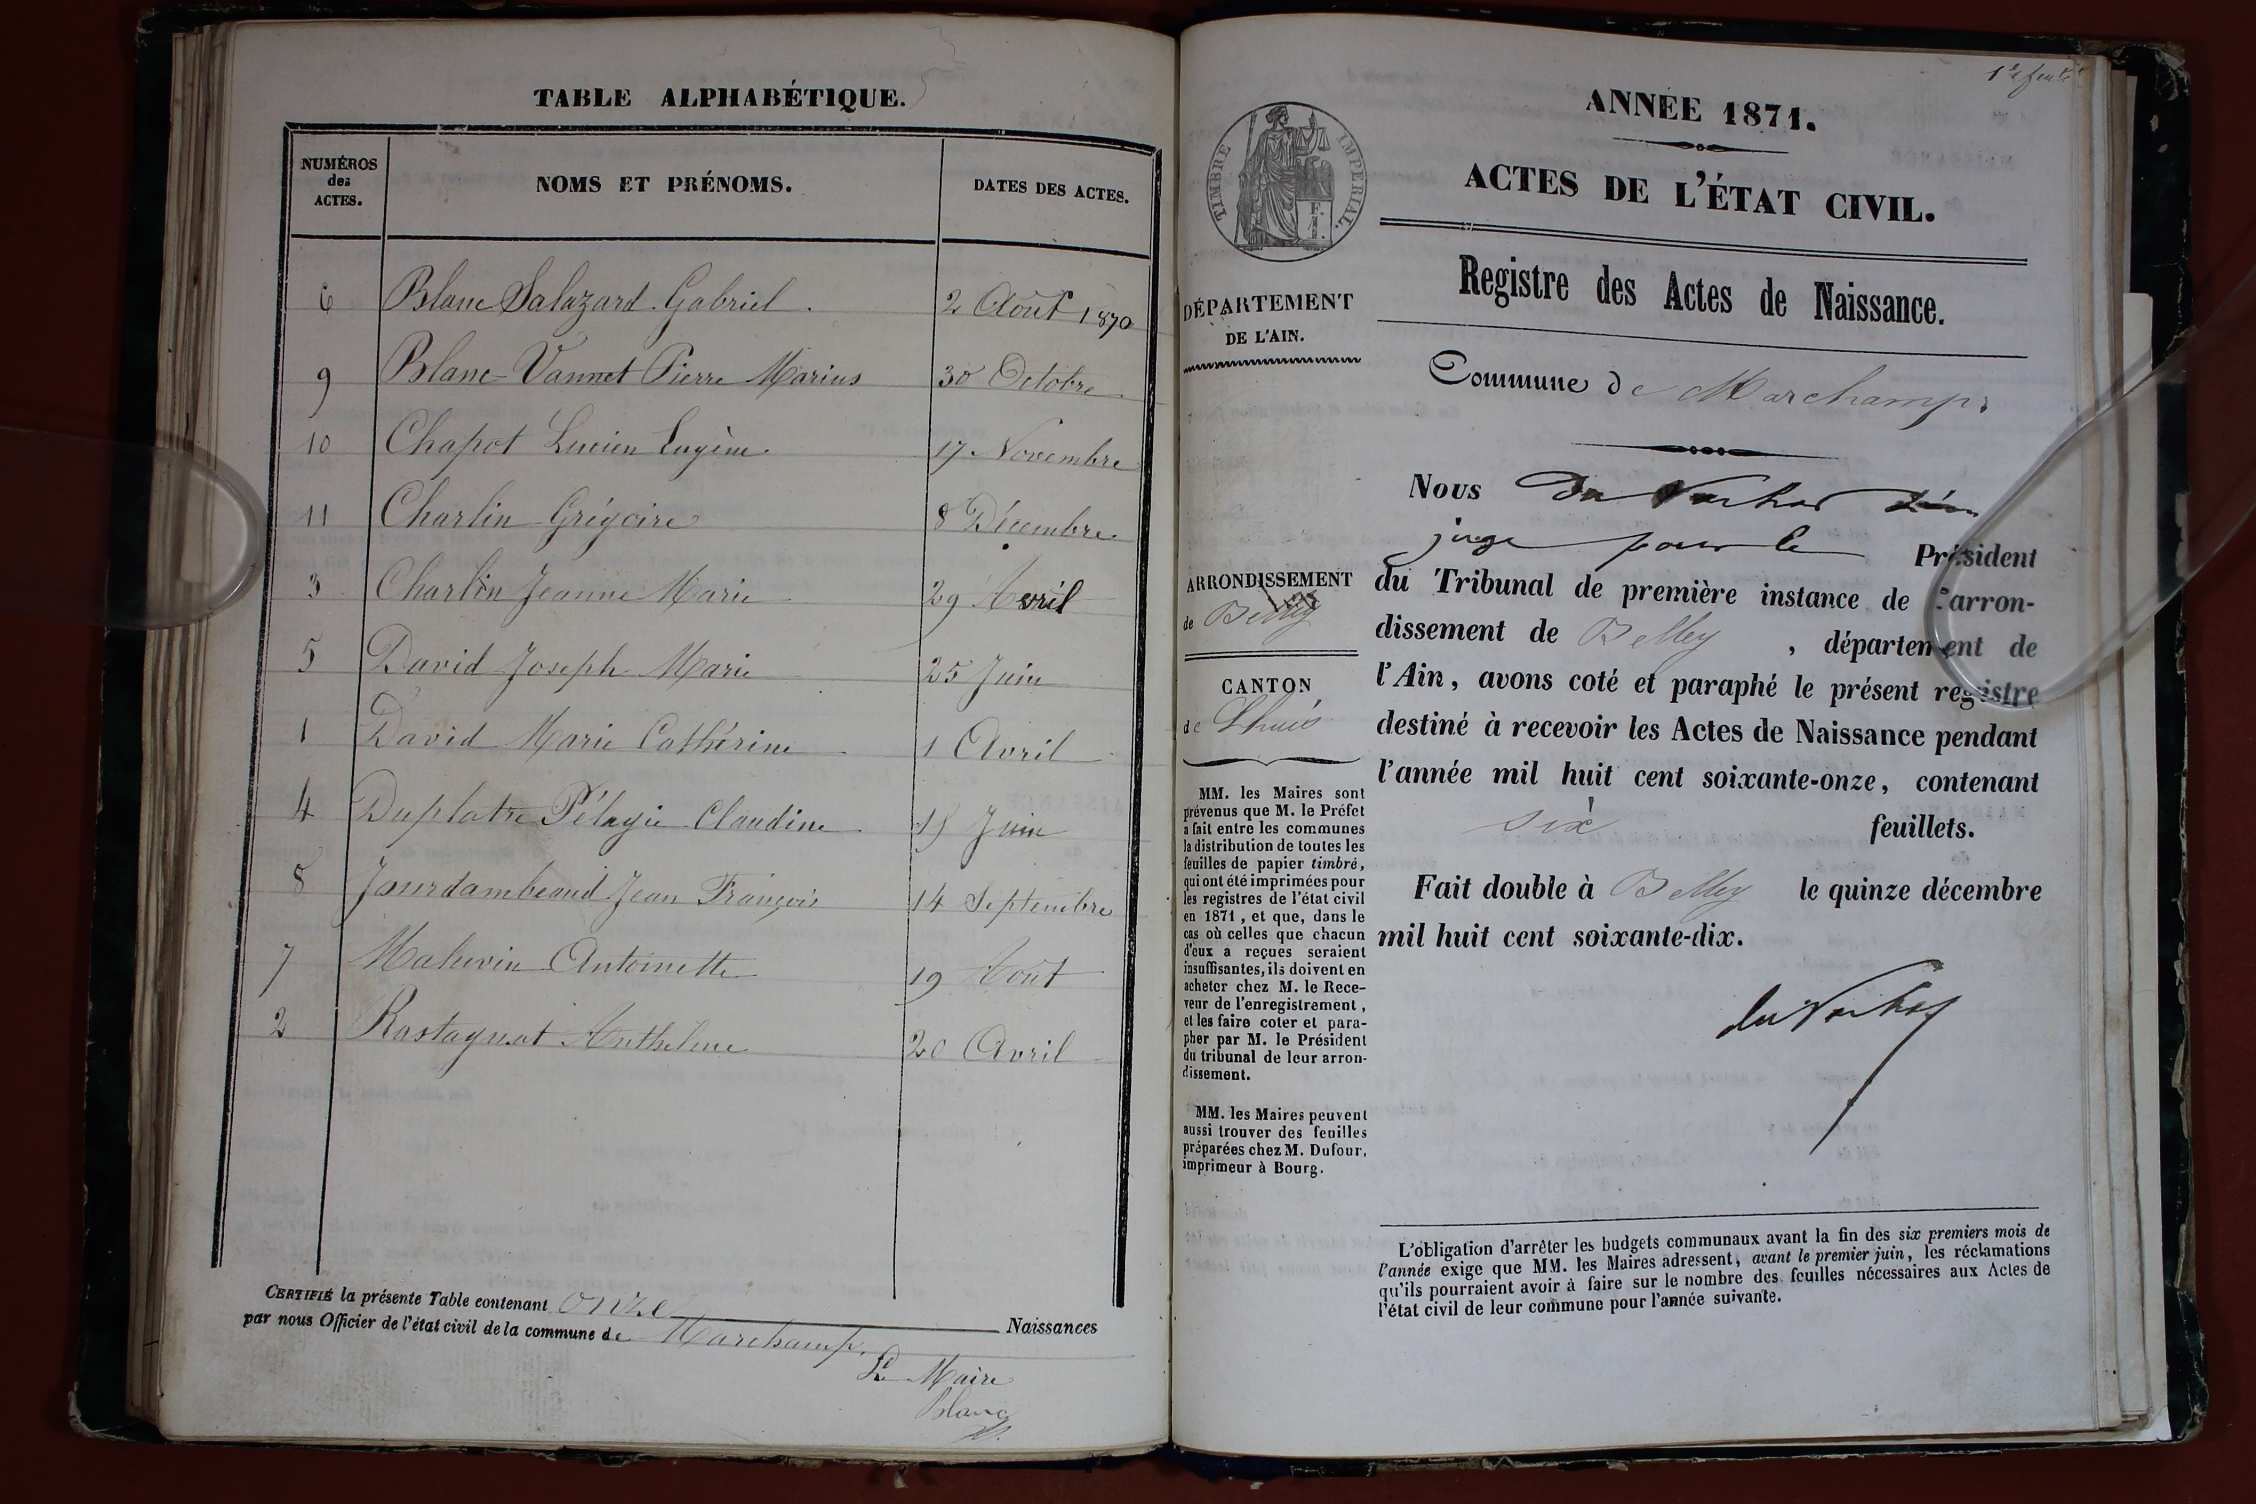 TABLE ALPHABÉTIQUE.
NUMÉROS
des
ACTES.
NOMS ET PRÉNOMS.
DATES DES ACTES.
6 Blanc Salazard Gabriel. 2 Août 1870
9 Blanc-Vannet Pierre Marius 30 Octobre
10 Chapot Lucien Eugène. 17 Novembre
11 Charlin Grégoire 8 Décembre.
3 Charlin Jeanne Marie 29 Avril
5 David Joseph Marie 25 Juin
1 David Marie Cathérine 1 Avril
4 Duplatre Pélagie Claudine 15 Juin
8 Jourdambeaud Jean François 14 Septembre
7 Antoinette 19 Août
2 Rastagnat Anthelme 20 Avril
CERTIFIÉ la présente Table contenant onze Naissances
par nous Officier de l'état civil de la commune de Marchamp.
Le Maire
Blanc
ANNÉE 1871.
ACTES DE L'ÉTAT CIVIL.
TIMBRE IMPÉRIAL.
F.
1.
Registre des Actes de Naissance.
DÉPARTEMENT
DE L'AIN.
Commune de Marchamp.
Nous
juge pour le Président
du Tribunal de première instance de l'arron-
dissement de Belley, département de
l'Ain, avons coté et paraphé le présent registre
destiné à recevoir les Actes de Naissance pendant
l'année mil huit cent soixante-onze, contenant
six feuillets.
Fait double à Belley le quinze décembre
mil huit cent soixante-dix.
ARRONDISSEMENT
de Belley
CANTON
de Lhuis
MM. les Maires sont
prévenus que M. le Préfet
a fait entre les communes
la distribution de toutes les
feuilles de papier timbré,
qui ont été imprimées pour
les registres de l'état civil
en 1871, et que, dans le
cas où celles que chacun
d'eux a reçues seraient
insuffisantes, ils doivent en
acheter chez M. le Rece-
veur de l'enregistrement,
et les faire coter et para-
pher par M. le Président
du tribunal de leur arron-
dissement.
MM. les Maires peuvent
aussi trouver des feuilles
préparées chez M. Dufour,
imprimeur à Bourg.
L'obligation d'arrêter les budgets communaux avant la fin des six premiers mois de
l'année exige que MM. les Maires adressent, avant le premier juin, les réclamations
qu'ils pourraient avoir à faire sur le nombre des feuilles nécessaires aux Actes de
l'état civil de leur commune pour l'année suivante.